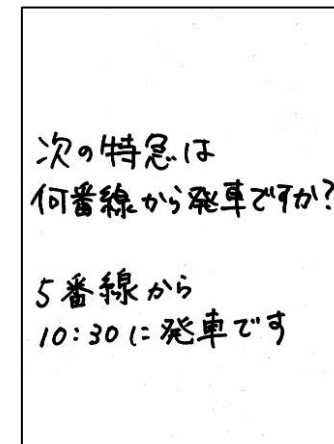 次の特急は
何番線から発車ですか?
5番線から
10:30に発車です